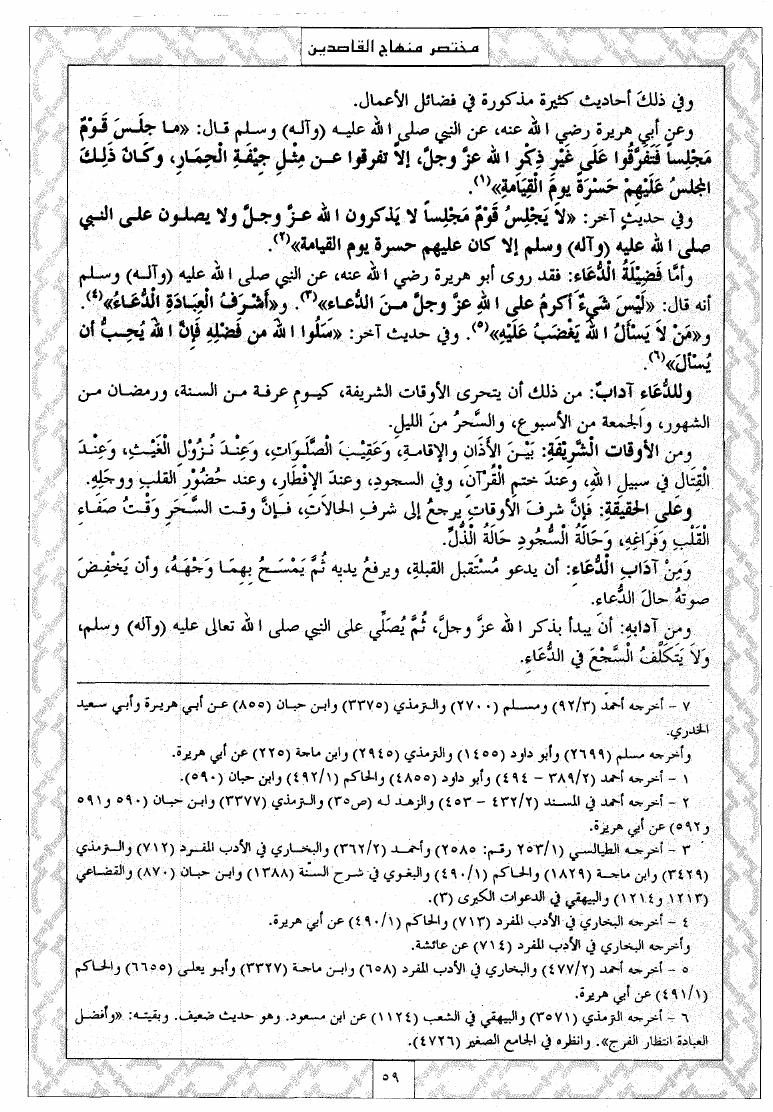 مختصر منهاج القاصدين
وفي ذلكَ أحاديث كثيرة مذكورة في فضائل الأعمال.
وعن أبي هريرة رضي الله عنه، عن النبي صلى الله عليه (وآله) وسلم قال: «ما جلَسَ قَوْمٌ
مَجْلِساً فَتَفَرَّقُوا عَلَى غَيْرِ ذِكْرِ الله عزَّ وجلَّ، إلاَّ تفرقوا عن مِثْلِ جِيْفَةِ الْحِمَارِ، وكَانَ ذَلِكَ
المجْلسُ عَلَيْهِمْ حَسْرَةً يومَ الْقِيَامَةِ»(١).
وفي حديثٍ آخر: «لاَ يَجْلِسُ قَوْمٌ مَجْلِساً لا يَذكرون الله عزَّ وجلَّ ولا يصلون على النبي
صلى الله عليه (وآله) وسلم إلا كان عليهم حسرة يوم القيامة»(٢).
وأمَّا فَضِيْلَةُ الدُّعَاءِ: فقد روى أبو هريرة رضي الله عنه، عن النبي صلى الله عليه (وآله) وسلم
أنه قال: «لَيْسَ شَيءٌ أكرمُ على اللهِ عزَّ وجلَّ منَ الدُّعاء»(٣). و«أَشْرَفُ العِبَادَةِ الدُّعَاءُ»(٤).
و«مَنْ لاَ يَسْأَلُ اللهَ يَغْضَبُ عَلَيْهِ»(٥). وفي حديث آخر: «سَلُوا اللهَ من فَضْلِهِ فَإِنَّ اللهَ يُحِبُّ أن
يُسْأَلَ»(٦).
وللدُّعَاء آدابٌ: من ذلك أن يتحرى الأوقات الشريفة، كيومِ عرفة من السنة، ورمضان من
الشهور، والجمعة من الأسبوع، والسَّحرُ منَ الليلِ.
ومن الأوقات الْشَّرِيْفَةِ: بَيْنَ الأَذَانِ والإقامةِ، وَعَقِيْبَ الصَّلَوَاتِ، وَعِنْدَ نزُوْلِ الْغَيْثِ، وَعِنْدَ
الْقِتَالِ في سبيلِ اللهِ، وعندَ ختمِ الْقُرآنِ، وفي السجودِ، وعندَ الإفْطَارِ، وعند حُضُوْرِ القلبِ ووجلِهِ.
وعلى الحقيقةِ: فإنَّ شرفَ الأوقاتِ يرجعُ إلى شرفِ الحالاَتِ، فإنَّ وقت السَّحَرِ وَقْتُ صَفَاءِ
الْقَلْبِ وَفَرَاغِهِ، وَحَالَةُ السُّجُودِ حَالَةُ الْذُّلِّ.
وَمِنْ آدَابِ الْدُّعَاءِ: أن يدعو مُسْتَقبل القبلةِ، ويرفعُ يديه ثُمَّ يَمْسَحُ بِهِمَا وَجْهَهُ، وأن يَخْفِضَ
صوتهُ حالَ الدُّعاء.
ومن آدابِهِ: أنَ يبدأ بذكر الله عزَّ وجلَّ، ثُمَّ يُصَلِّي على النبي صلى الله تعالى عليه (وآله) وسلم،
وَلاَ يَتَكَلَّفُ السَّجْعَ في الدُّعَاءِ.
٧ – أخرجه أحمد (٩٢/٣) ومسلم (٢٧٠٠) والترمذي (٣٣٧٥) وابن حبان (٨٥٥) عن أبي هريرة وأبي سعيد
الخدري.
وأخرجه مسلم (٢٦٩٩) وأبو داود (١٤٥٥) والترمذي (٢٩٤٥) وابن ماجة (٢٢٥) عن أبي هريرة.
١ – أخرجه أحمد (٣٨٩/٢ – ٤٩٤) وأبو داود (٤٨٥٥) والحاكم (٤٩٢/١) وابن حبان (٥٩٠).
٢ – أخرجه أحمد في المسند (٤٣٢/٢ – ٤٥٣) والزهد له (ص٣٥) والترمذي (٣٣٧٧) وابن حبان (٥٩٠ و٥٩١
و٥٩٢) عن أبي هريرة.
٣ – أخرجه الطيالسي (٢٥٣/١ رقم: ٢٥٨٥) وأحمد (٣٦٢/٢) والبخاري في الأدب المفرد (٧١٢) والترمذي
(٣٤٢٩) وابن ماجة (١٨٢٩) والحاكم (٤٩٠/١) والبغوي في شرح السنّة (١٣٨٨) وابن حبان (٨٧٠) والقضاعي
(١٢١٣ و١٢١٤) والبيهقي في الدعوات الكبرى (٣).
٤ – أخرجه البخاري في الأدب المفرد (٧١٣) والحاكم (٤٩٠/١) عن أبي هريرة.
وأخرجه البخاري في الأدب المفرد (٧١٤) عن عائشة.
٥ – أخرجه أحمد (٤٧٧/٢) والبخاري في الأدب المفرد (٦٥٨) وابن ماجة (٣٣٢٧) وأبو يعلى (٦٦٥٥) والحاكم
(٤٩١/١) عن أبي هريرة.
٦ – أخرجه الترمذي (٣٥٧١) والبيهقي في الشعب (١١٢٤) عن ابن مسعود. وهو حديث ضعيف. وبقيته: «وأفضل
العبادة انتظار الفرج». وانظره في الجامع الصغير (٤٧٢٦).
٥٩